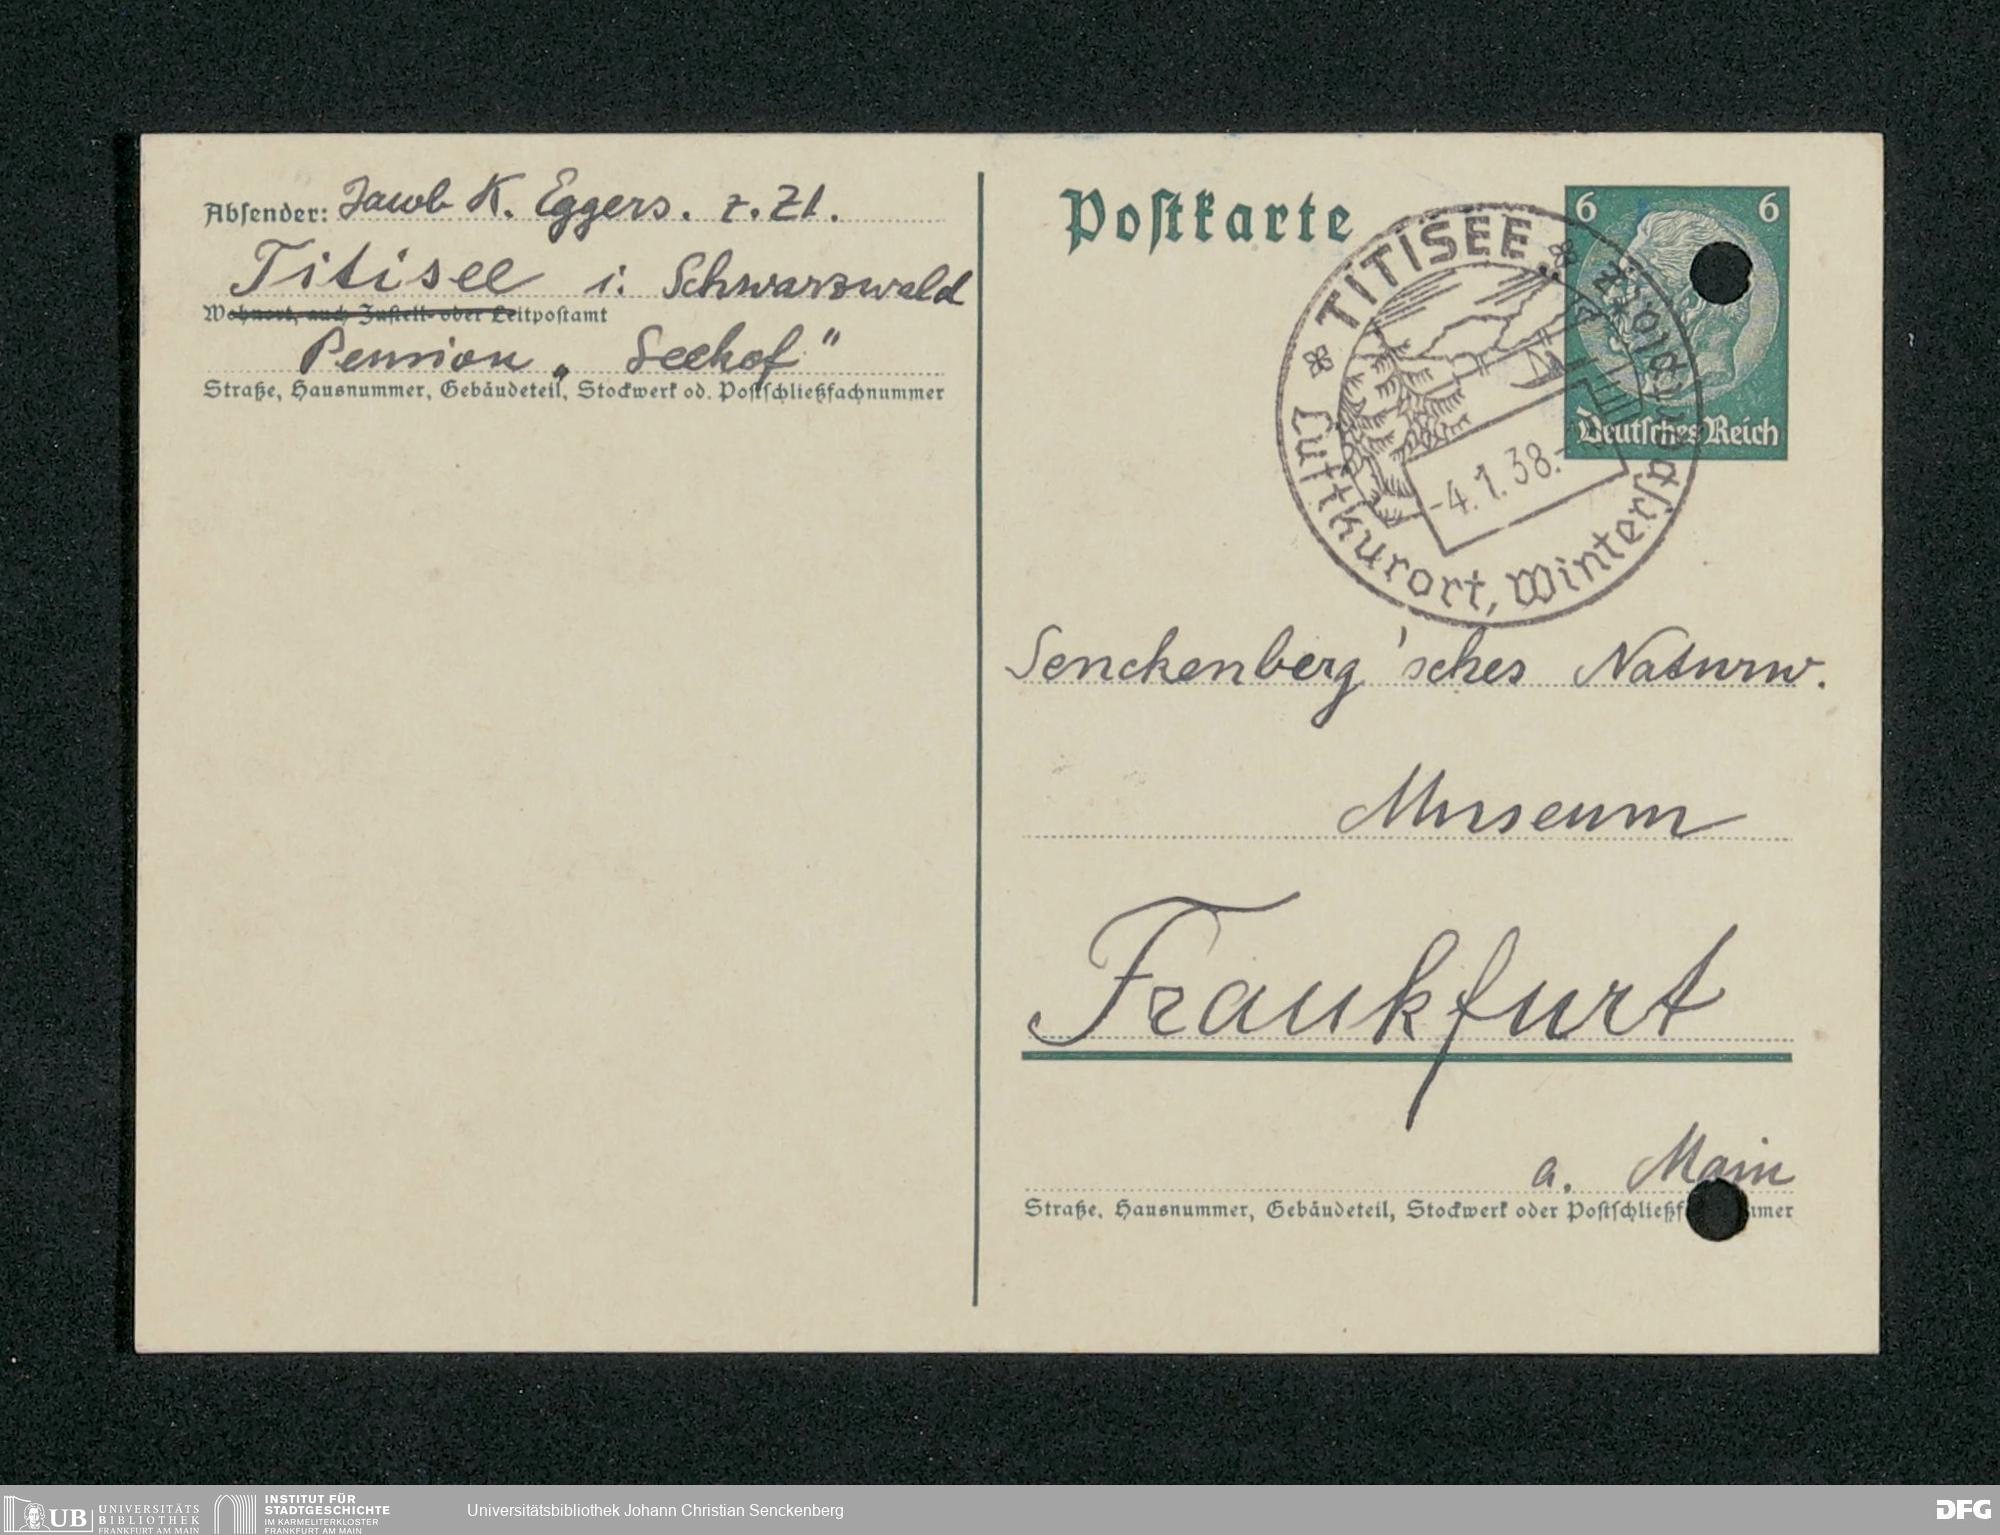 Absender: Jacob K. Eggers. z. Zt.
Titisee i. Schwarzwald
Wohnort, auch Zustell- oder Leitpostamt
Pension „Seehof"
Straße, Hausnummer, Gebäudeteil, Stockwerk od. Postschließfachnummer
Postkarte
6 6
Deutsches Reich
TITISEE
-4.1.38.-
Luftkurort, Wintersportplatz
Senckenberg'sches Naturw.
Museum
Frankfurt
a. Main
Straße, Hausnummer, Gebäudeteil, Stockwerk oder Postschließf mmer
UB UNIVERSITÄTS
BIBLIOTHEK
FRANKFURT AM MAIN
INSTITUT FÜR
STADTGESCHICHTE
IM KARMELITERKLOSTER
FRANKFURT AM MAIN
Universitätsbibliothek Johann Christian Senckenberg
DFG